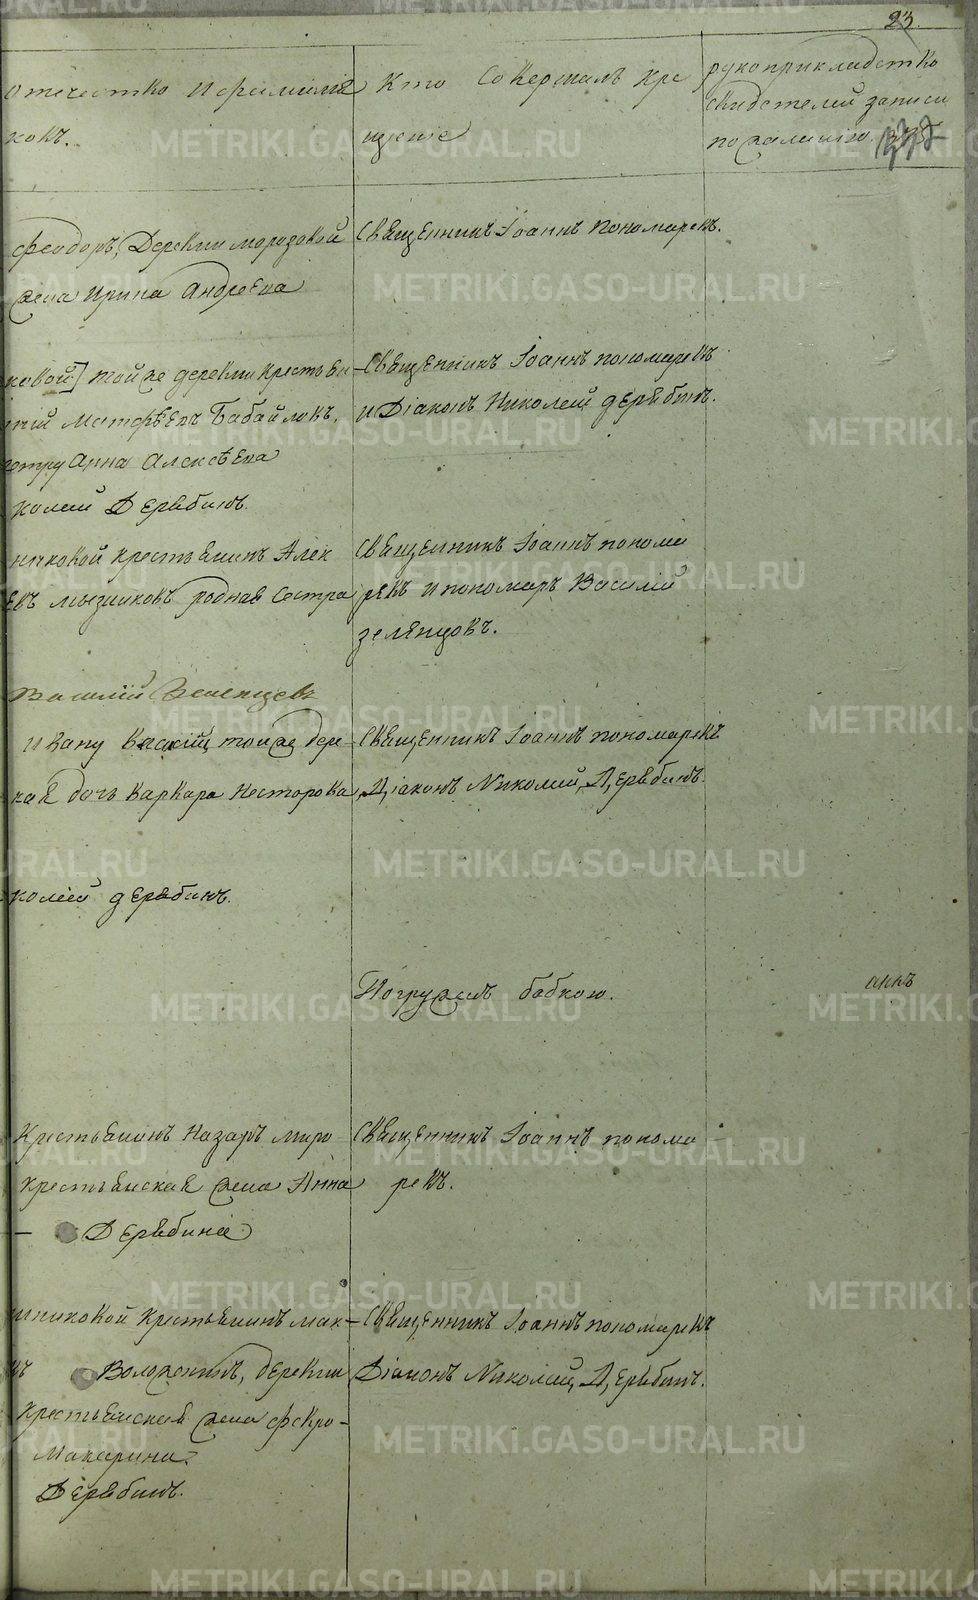 23
отчество и фамилія
ковъ.
Кто совершалъ кре
щеніе
рукоприкладство
свидетелей записи
по желанію.
Феодоръ, Деревни Морозовой
жена Ирина Андреева
Священникъ Іоаннъ Пономаревъ.
новой] тойже деревни крестьян
тій Матфѣевъ Бабайловъ,
Анна Алексѣева
колай Дерябинъ.
Священникъ Іоаннъ Пономаревъ
и Діаконъ Николай Дерябинъ.
никовой крестьянинъ Алек
евъ родная сестра
Священникъ Іоаннъ Понома
ревъ и пономарь Василій
Зеленцовъ.
Василій Зеленцовъ
Ивану тойже дере
кая дочь Варвара Несторова
Священникъ Іоаннъ Пономаревъ
Діаконъ Николай Дерябинъ.
колай Дерябинъ.
Погружены бабкою.
Крестьянинъ Назаръ Миро
крестьянская жена Анна
Дерябинъ
Священникъ Іоаннъ Понома
ревъ.
никовой крестьянинъ Мак
въ Воложенинъ, деревни
крестьянская жена Февро
Макарина
Дерябинъ.
Священникъ Іоаннъ Пономаревъ
Діаконъ Николай Дерябинъ.
METRIKI.GASO-URAL.RU